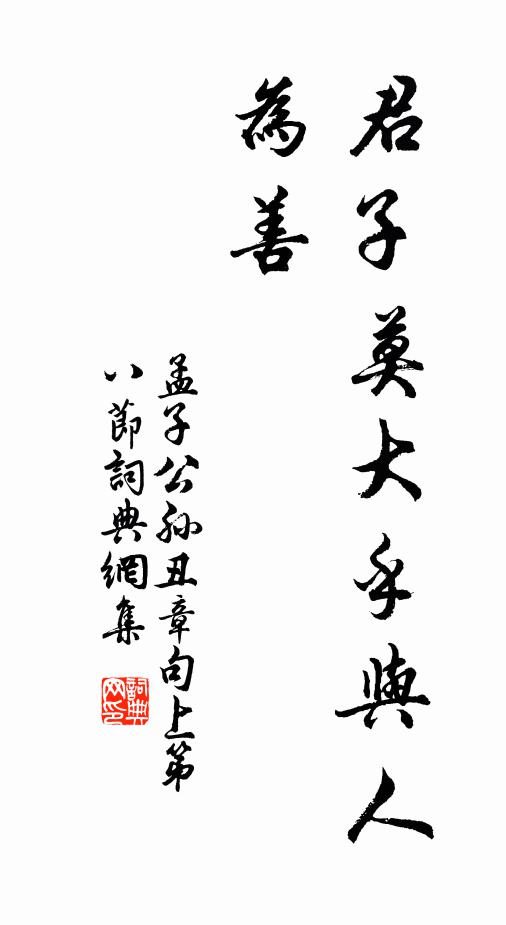 君子莫大乎與人
為善
孟子公孫丑章句上第
八節詞典網集
詞典網印